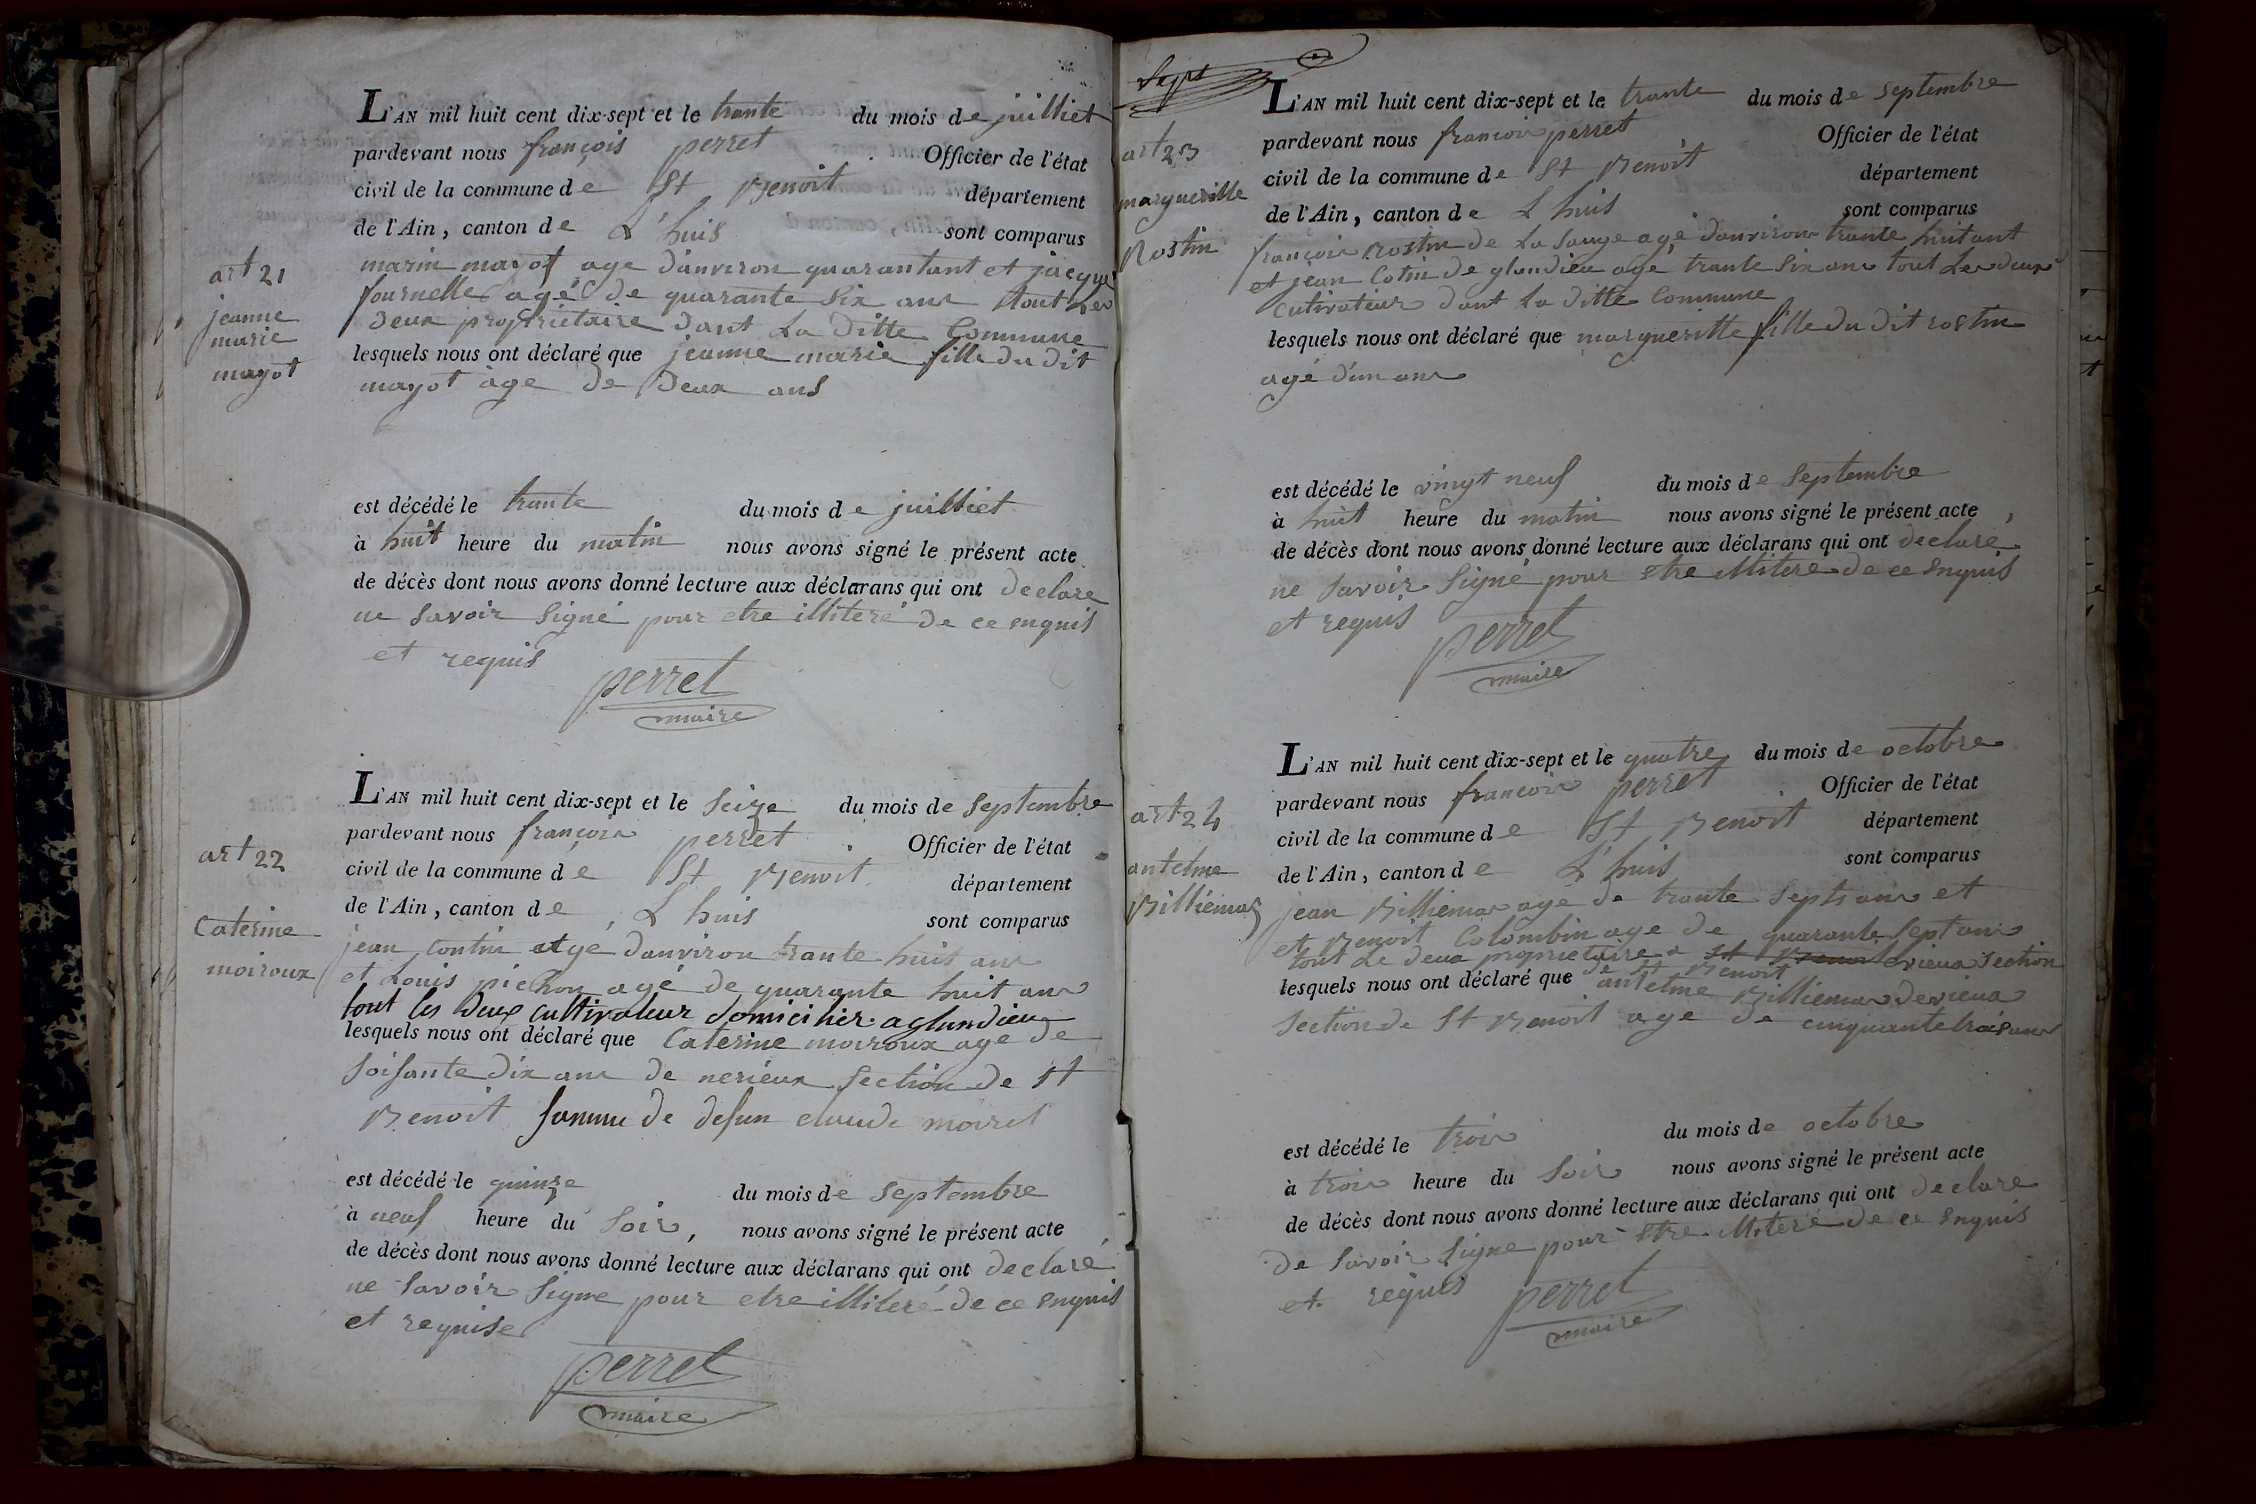 art 21
jeanne
marie
mayot
L'AN mil huit cent dix-sept et le trante du mois de juilliet
pardevant nous françois perret Officier de l'état
civil de la commune de St Benoit département
de l'Ain, canton de L'huis sont comparus
marin mayot age danviron quarantant et jacque
fournelle agé de quarante six ans tout Les
deux proprietaire dant La ditte Commune
lesquels nous ont déclaré que jeanne marie fille du dit
mayot àge de deux ans
est décédé le trante du mois de juilliet
à huit heure du matin nous avons signé le présent acte
de décès dont nous avons donné lecture aux déclarans qui ont declare
ne savoir signé pour etre illiteré de ce enquis
et requis
perret
maire
art 22
Caterine
moiroux
L'AN mil huit cent dix-sept et le seize du mois de septembre
pardevant nous françois perret Officier de l'état
civil de la commune de St Benoit département
de l'Ain, canton de L'huis sont comparus
jean contin agé danviron trante huit ans
et Louis pichon agé de quarante huit ans
tout les deux cultivateur domicilier a glandieu
lesquels nous ont déclaré que Caterine moiroux age de
soisante dix ans de nerieux section de st
Benoit famme de defun claude moiret
est décédé le quinze du mois de septembre
à neuf heure du soir, nous avons signé le présent acte
de décès dont nous avons donné lecture aux déclarans qui ont declaré
ne savoir signe pour etre illiteré de ce enquis
et requise
perret
maire
Sept
art 23
margueritte
Rostin
L'AN mil huit cent dix-sept et le trante du mois de septembre
pardevant nous francois perret Officier de l'état
civil de la commune de St Benoit département
de l'Ain, canton de L huis sont comparus
françois rostin de La sauge agé danviron trante huitant
et jean Cotin de glandieu agé trante six ans tout Les deux
cutivateur dant La ditte Commune
lesquels nous ont déclaré que margueritte fille du dit rostin
agé d'un ans
est décédé le vingt neuf du mois de septembre
à huit heure du matin nous avons signé le présent acte,
de décès dont nous avons donné lecture aux déclarans qui ont declare
ne savoir signé pour etre illitere de ce enquis
et requis
perret
maire
art 24
antelme
Billiemaz
L'AN mil huit cent dix-sept et le quatre du mois de octobre
pardevant nous francois perret Officier de l'état
civil de la commune de St Benoit département
de l'Ain, canton de L'huis sont comparus
jean Billiemas agé de trante septs ans et
et Benoit Colombin age de quarante sept ans
tout Le deux proprietaire a section
de st Benoit
lesquels nous ont déclaré que antelme Billiemas
section de St Benoit age de cinquante trois ans
est décédé le trois du mois de octobre
à trois heure du soir nous avons signé le présent acte
de décès dont nous avons donné lecture aux déclarans qui ont declare
de savoir signe pour etre illiteré de ce enquis
et requis
perret
maire